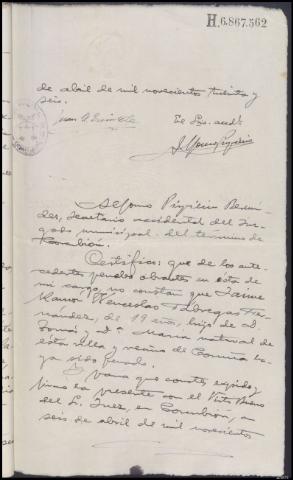 H.6.867.562
de abril de mil novecientos treinta y
seis.
El Srio. accdtl
Alfonso Pigrieiu Bermú-
dez, Secretario accidental del Juz-
gado municipal del término de
Corcubión.
Certifico: que de los ante-
cedentes penales obrantes en esta de
mi cargo, no constan que Jaime
Ramon Wenceslao Fabregas Fer-
nández, de 19 años, hijo de D.
Tomás y Dª. Maria natural de
esta villa y vecino de Coruña ha-
ya sido penado.
Y para que conste, expido y
firmo la presente con el Visto Bueno
del S. Juez, en Corcubión, a
seis de abril de mil novecientos